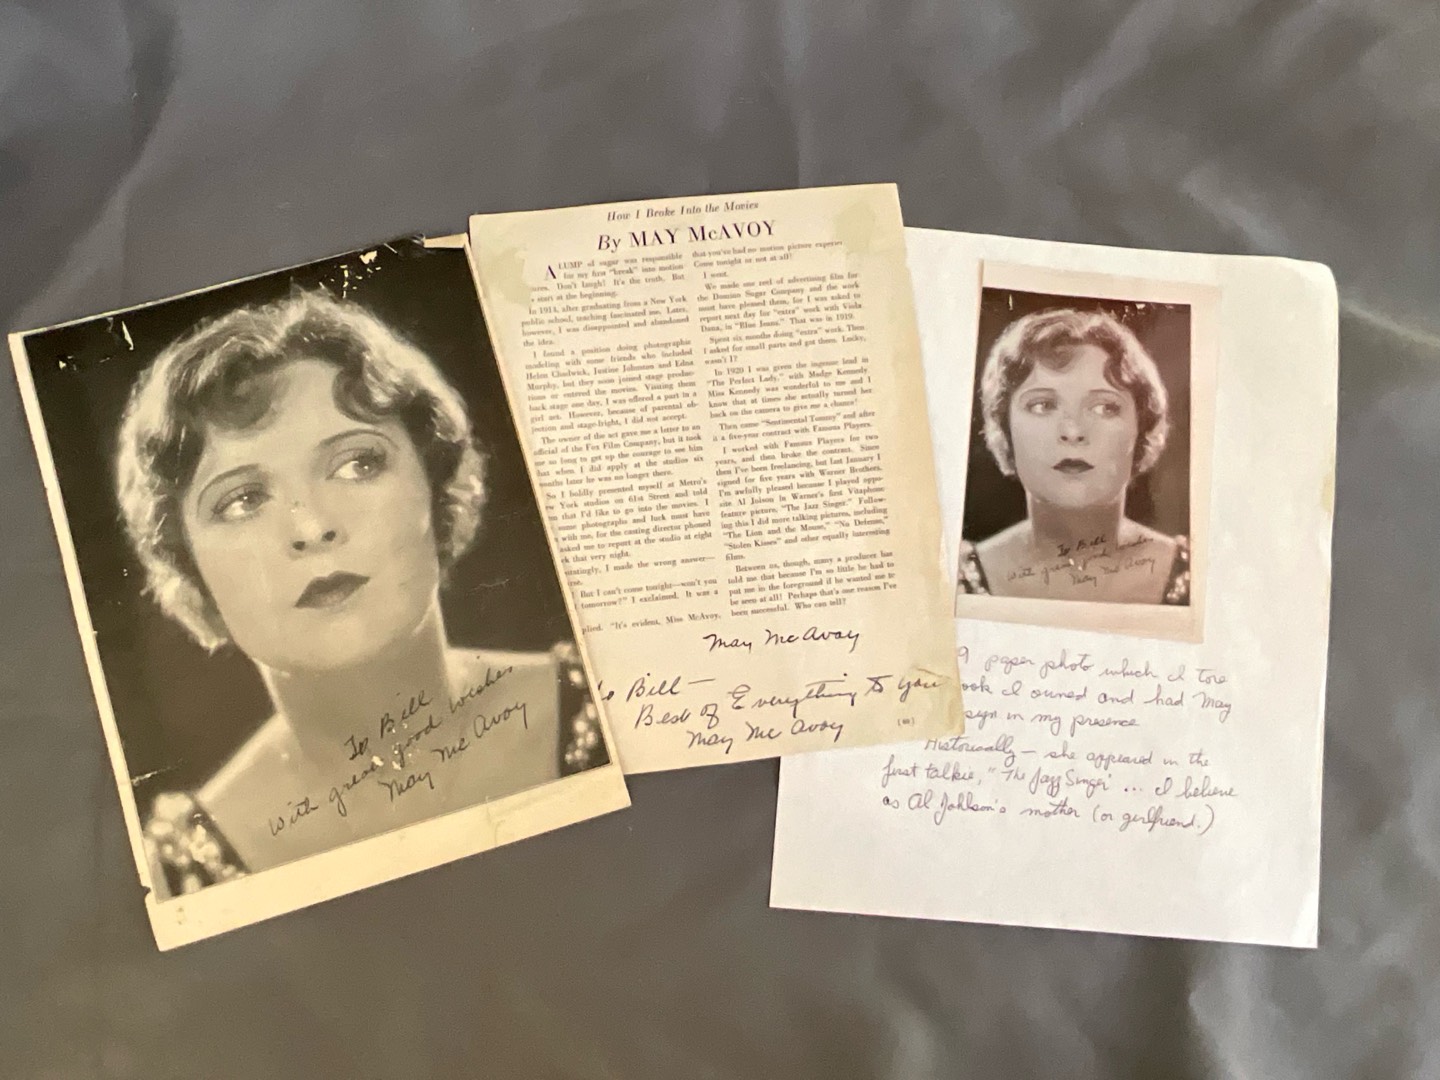 To Bill
With great good wishes
May Mc Avoy
How I Broke Into the Movies
By MAY McAVOY
A LUMP of sugar was responsible
for my first "break" into motion
Don't laugh! It's the truth. But
start at the beginning.
In 1914, after graduating from a New York
public school, teaching fascinated me. Later,
however, I was disappointed and abandoned
the idea.
I found a position doing photographic
modeling with some friends who included
Helen Chadwick, Justine Johnston and Edna
Murphy, but they soon joined stage produc-
tions or entered the movies. Visiting them
back stage one day, I was offered a part in a
girl act. However, because of parental ob-
jection and stage-fright, I did not accept.
The owner of the act gave me a letter to an
official of the Fox Film Company, but it took
me so long to get up the courage to see him
that when I did apply at the studios six
months later he was no longer there.
So I boldly presented myself at Metro's
New York studios on 61st Street and told
that I'd like to go into the movies. I
some photographs and luck must have
with me, for the casting director phoned
asked me to report at the studio at eight
that very night.
I made the wrong answer—
But I can't come tonight—won't you
tomorrow?" I exclaimed. It was a
"It's evident, Miss McAvoy,
that you've had no motion picture
Come tonight or not at all!
I went.
We made one reel of advertising film for
the Domino Sugar Company and the work
must have pleased them, for I was asked to
report next day for "extra" work with Viola
Dana, in "Blue Jeans." That was in 1919.
Spent six months doing "extra" work. Then
I asked for small parts and got them. Lucky,
wasn't I?
In 1920 I was given the ingenue lead in
"The Perfect Lady," with Madge Kennedy.
Miss Kennedy was wonderful to me and I
know that at times she actually turned her
back on the camera to give me a chance!
Then came "Sentimental Tommy" and after
it a five-year contract with Famous Players.
I worked with Famous Players for two
years, and then broke the contract. Since
then I've been freelancing, but last January I
signed for five years with Warner Brothers.
I'm awfully pleased because I played oppo-
site Al Jolson in Warner's first Vitaphone
feature picture, "The Jazz Singer." Follow-
ing this I did more talking pictures, including
"The Lion and the Mouse," "No Defense,"
"Stolen Kisses" and other equally interesting
films.
Between us, though, many a producer has
told me that because I'm so little he had to
put me in the foreground if he wanted me to
be seen at all! Perhaps that's one reason I've
been successful. Who can tell?
May McAvoy
To Bill—
Best of Everything to you
May Mc Avoy
To Bill
With great good wishes
May Mc Avoy
9 paper photo which I tore
book I owned and had May
sign in my presence
Historically - she appeared in the
first talkie, "The Jazz Singer" ... I believe
as Al Johlson's mother (or girlfriend.)